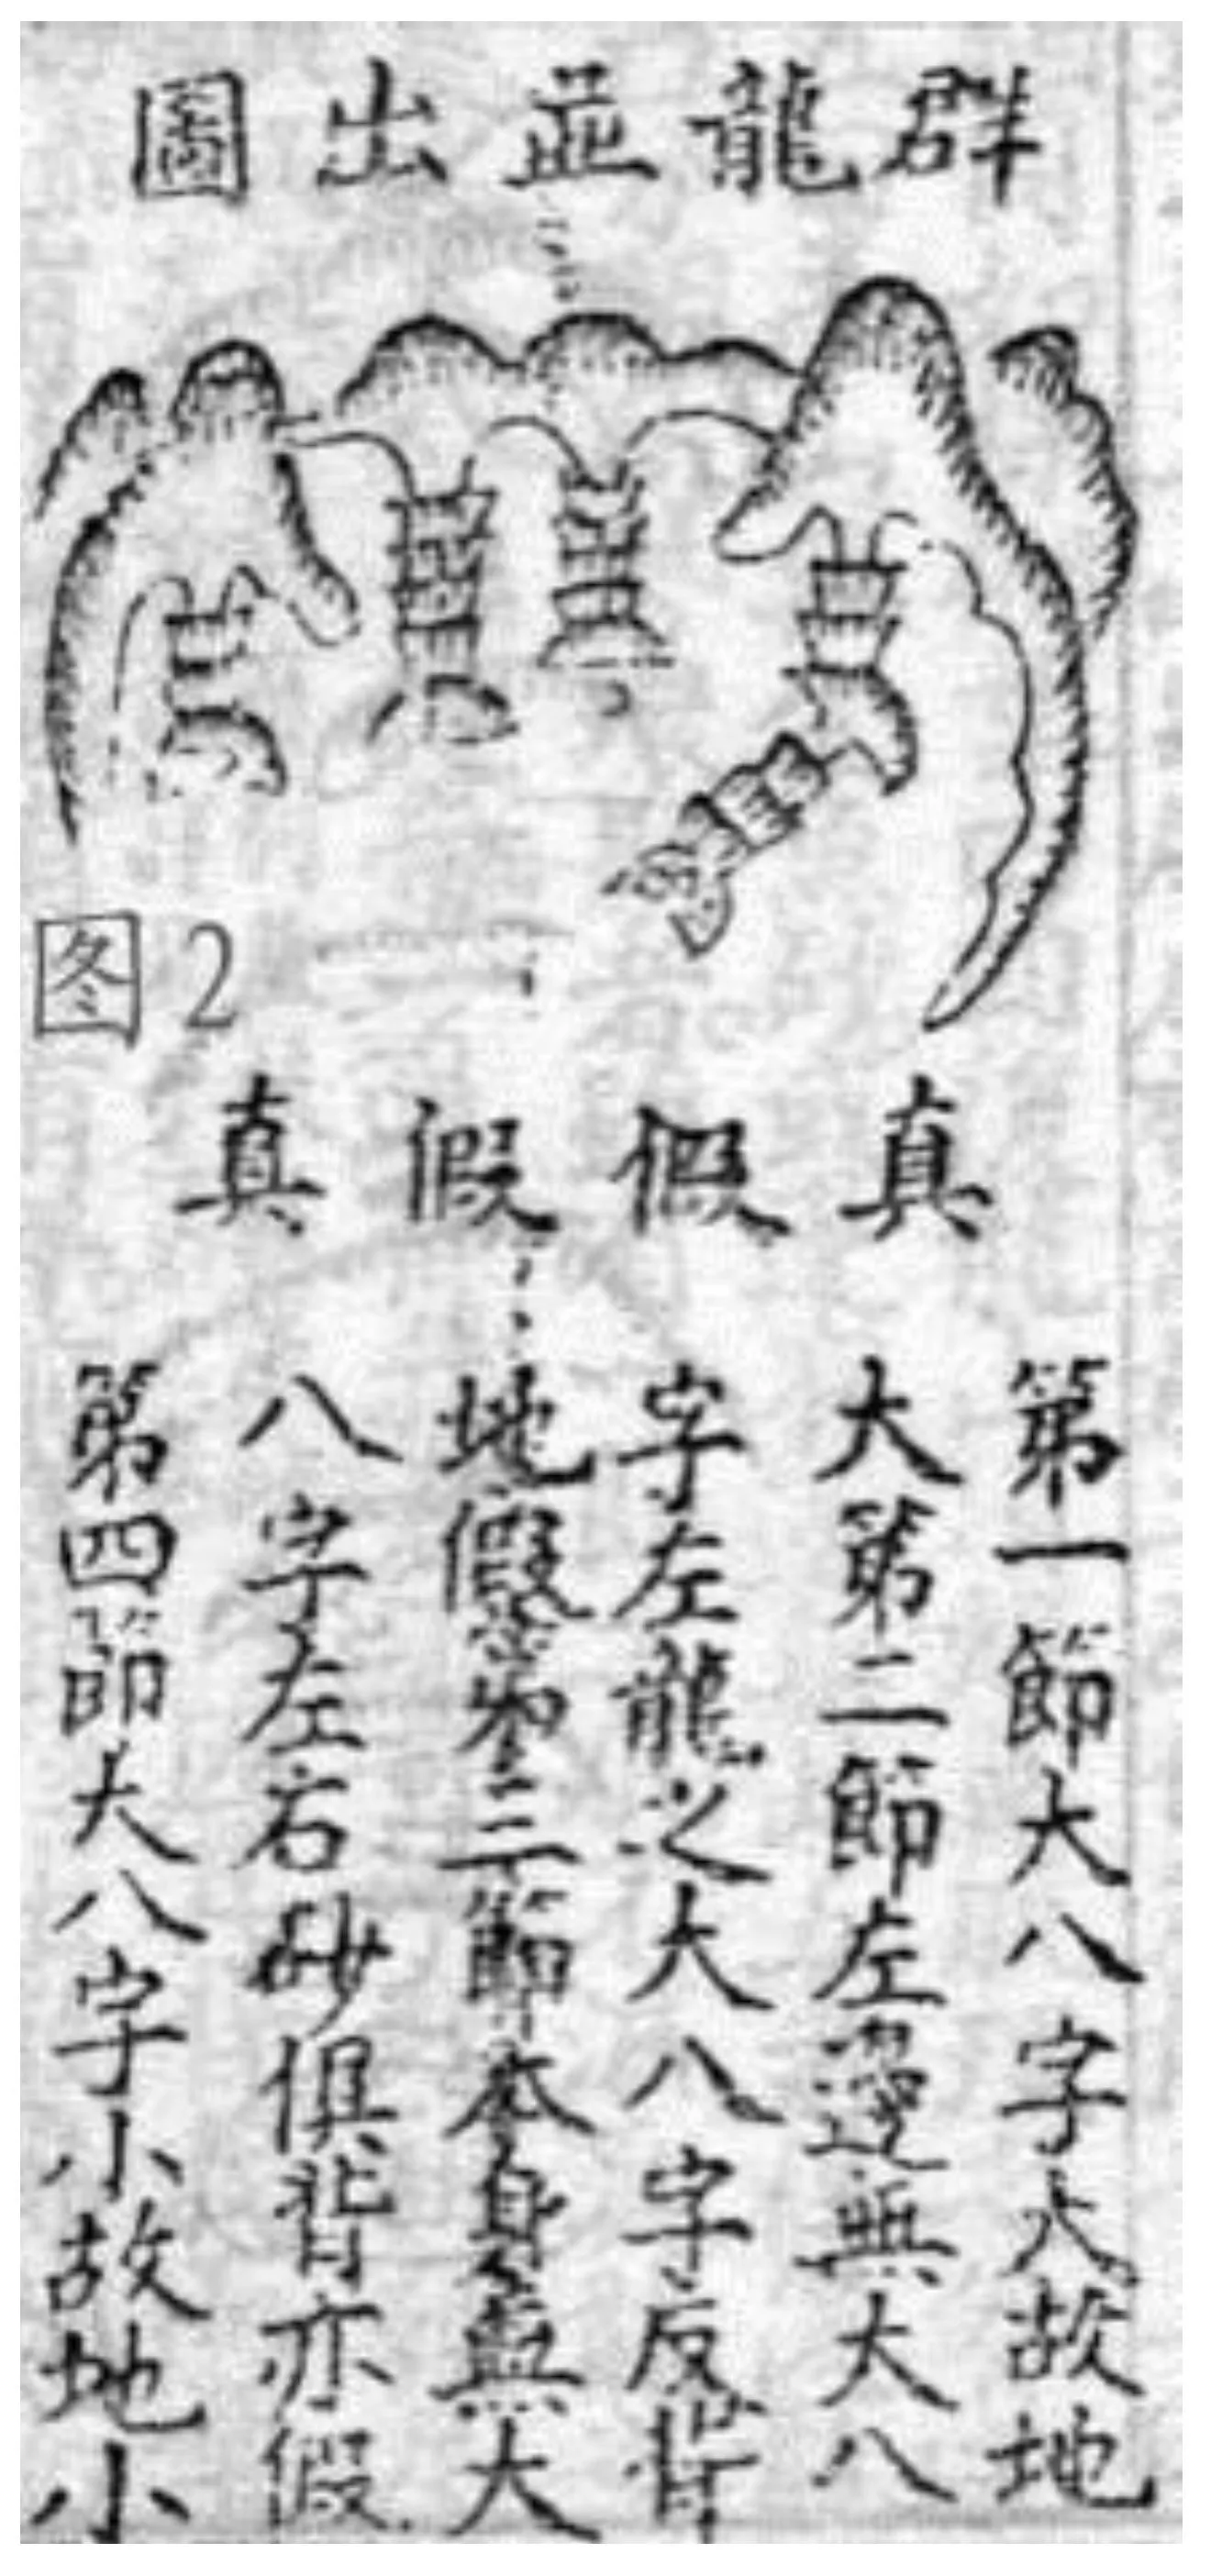 群龍並出圖
图2
真 假 假 真
第一節大八字大故地
大第二節左邊無大八
字左龍之大八字反背
地假第三節本身無大
八字左右砂俱背亦假
第四節大八字小故地小